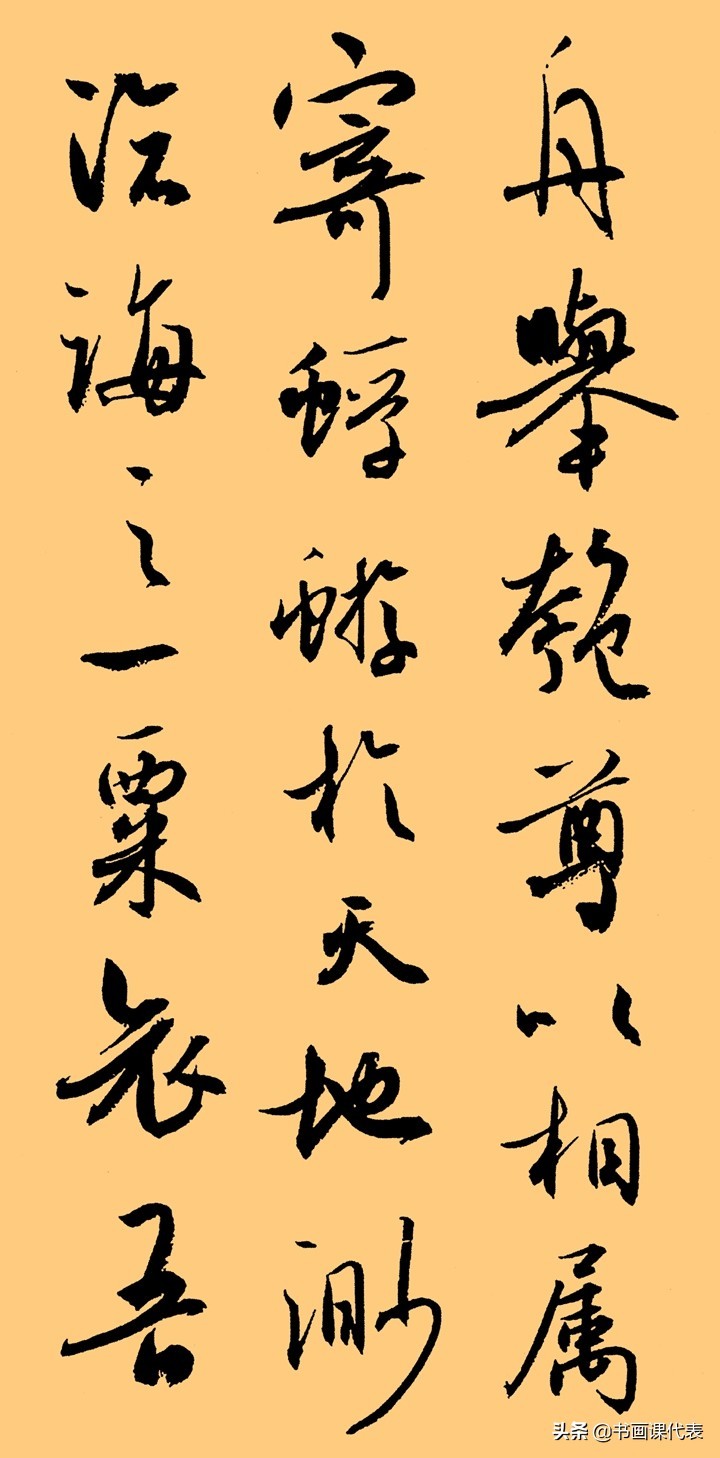 舟舉匏尊以相属
寄蜉蝣於天地渺
滄海之一粟哀吾
头条 @书画课代表